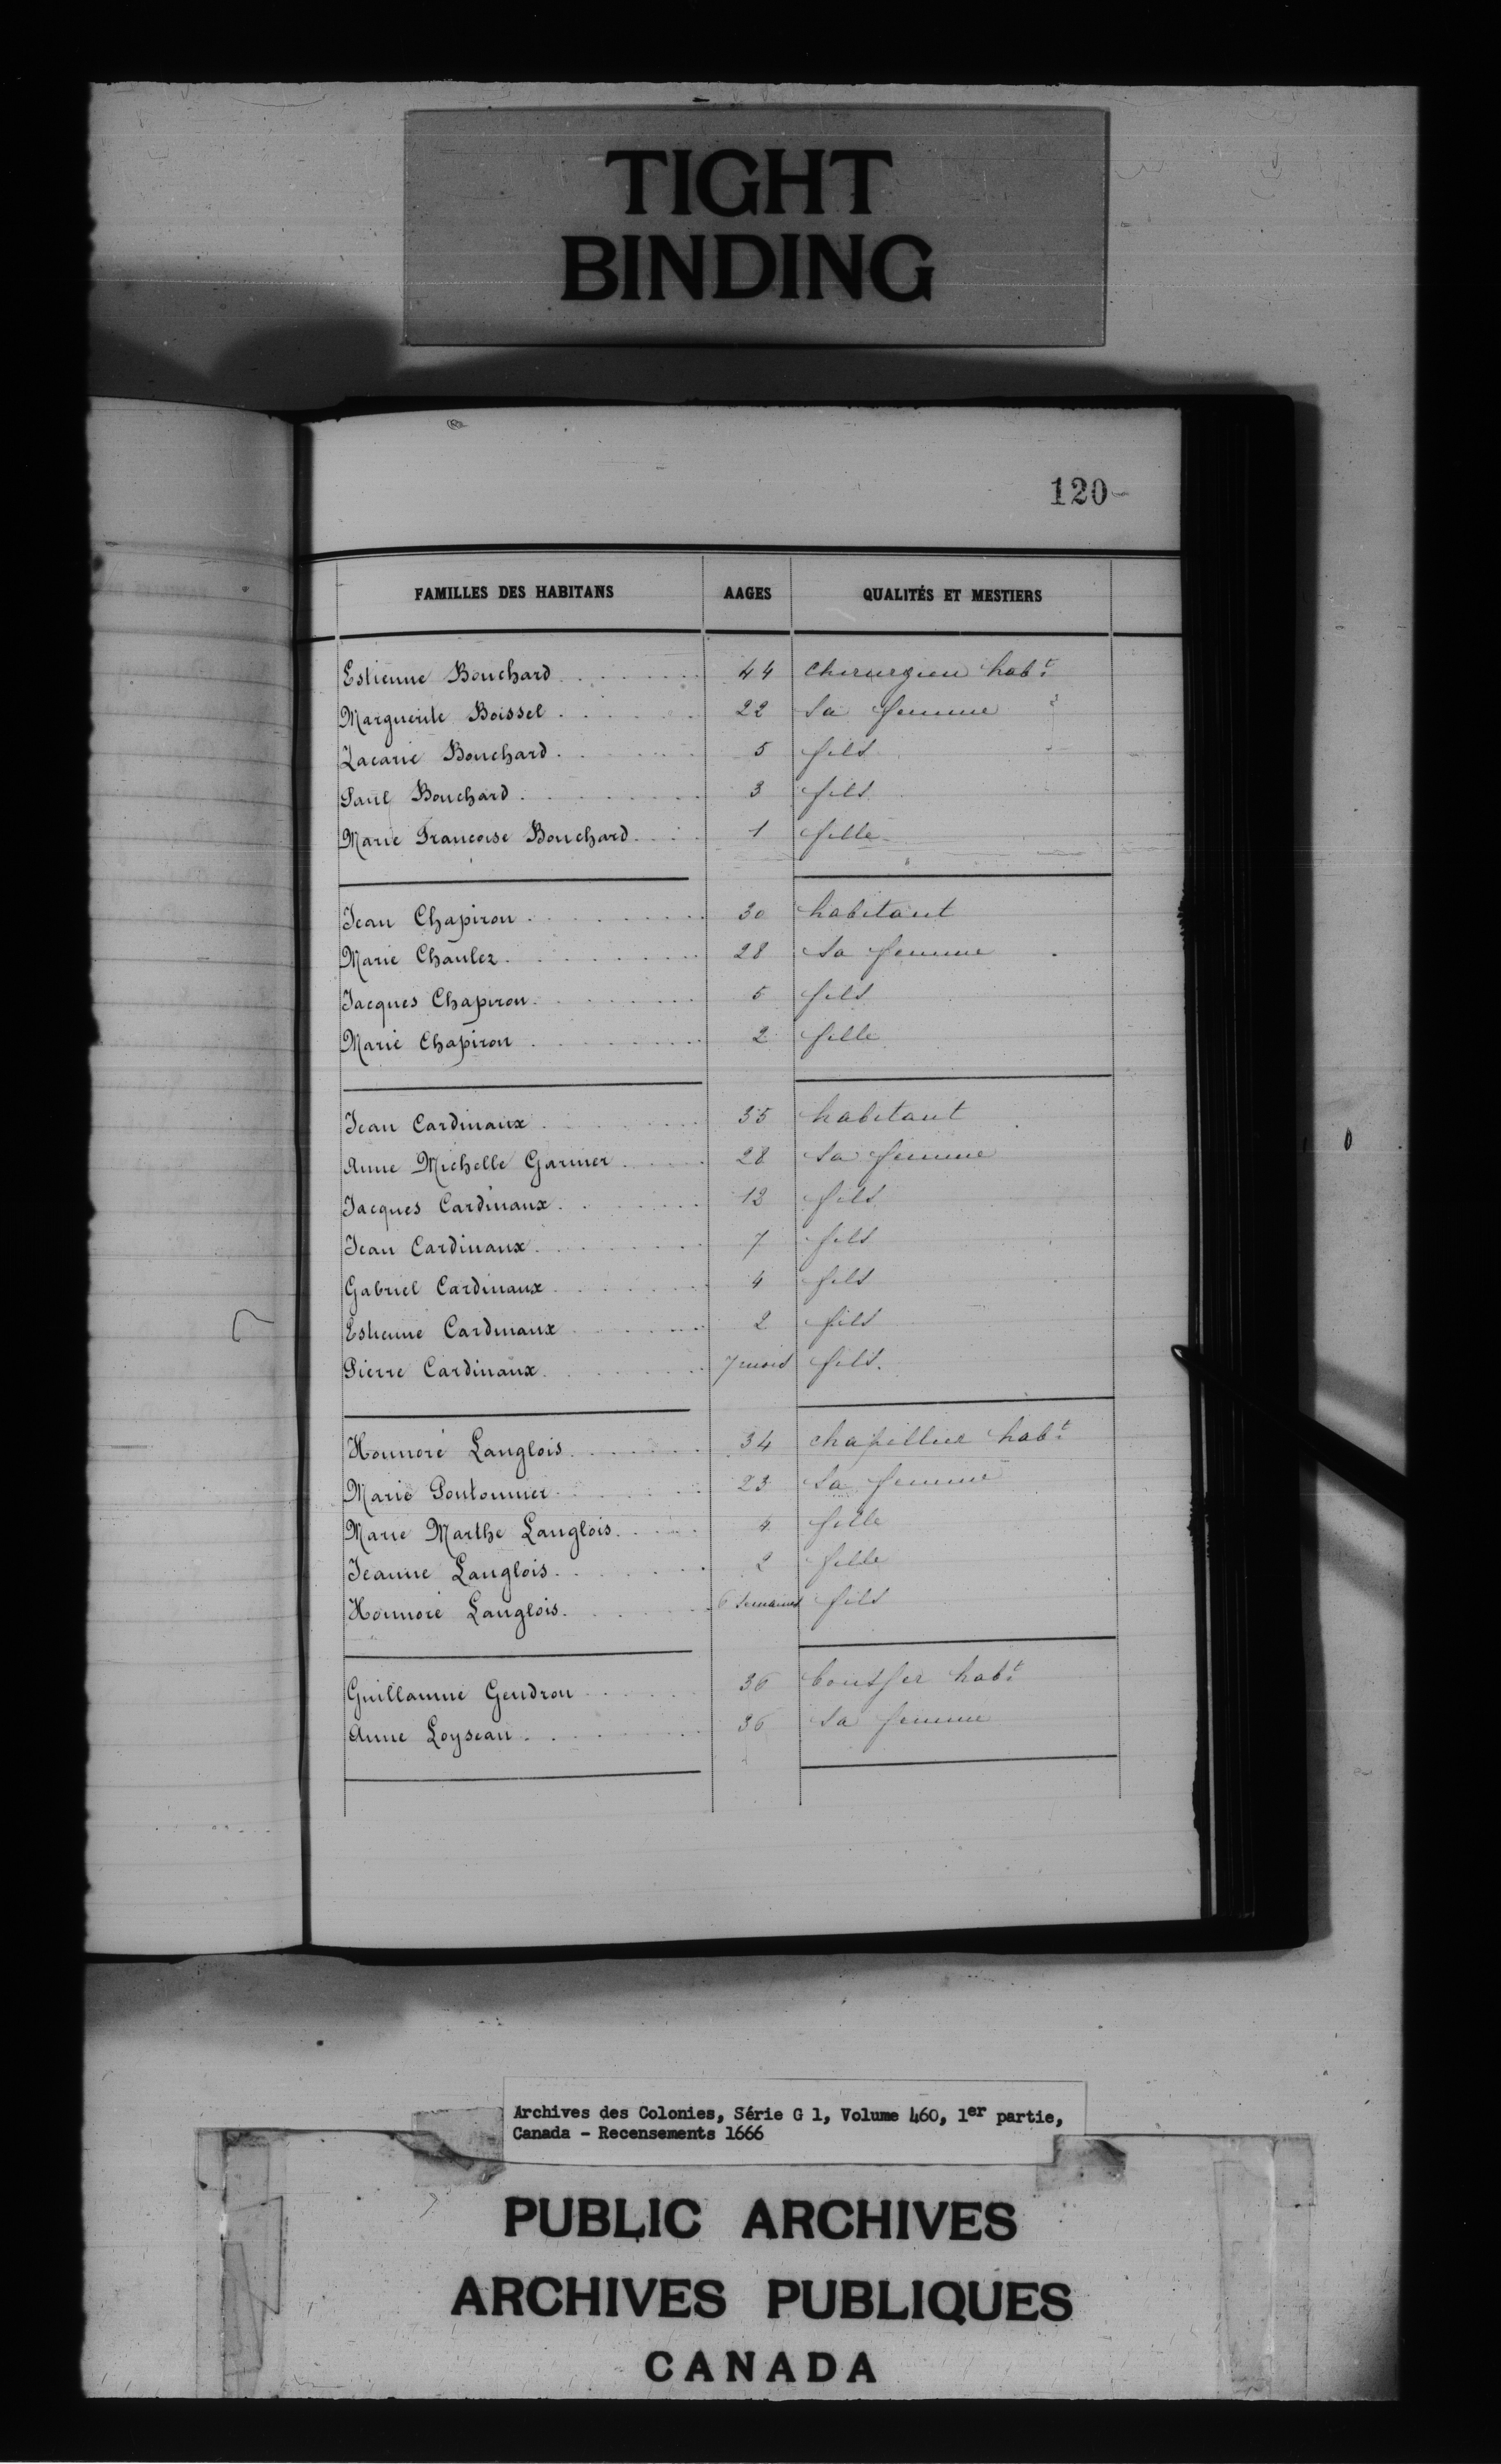 TIGHT
BINDING
120
FAMILLES DES HABITANS AAGES QUALITÉS ET MESTIERS
Estienne Bouchard 44 chirurgien hab.t
Marguerite Boissel 22 sa femme
Zacarie Bouchard 5 fils
Paul Bouchard 3 fils
Marie Francoise Bouchard 1 fille
Jean Chapiron 30 habitant
Marie Chaulez 28 sa femme
Jacques Chapiron 5 fils
Marie Chapiron 2 fille
Jean Cardinaux 35 habitant
Anne Michelle Garnier 28 sa femme
Jacques Cardinaux 12 fils
Jean Cardinaux 7 fils
Gabriel Cardinaux 4 fils
Estienne Cardinaux 2 fils
Pierre Cardinaux 7 mois fils.
Honnoré Langlois 34 chapellier hab.t
Marie Pontonnier 23 sa femme
Marie Marthe Langlois 4 fille
Jeanne Langlois 2 fille
Honnoré Langlois 6 semaines fils
Guillaume Gendron 36 hab.t
Anne Loyseau 36 sa femme
Archives des Colonies, Série G 1, Volume 460, 1er partie,
Canada - Recensements 1666
PUBLIC ARCHIVES
ARCHIVES PUBLIQUES
CANADA